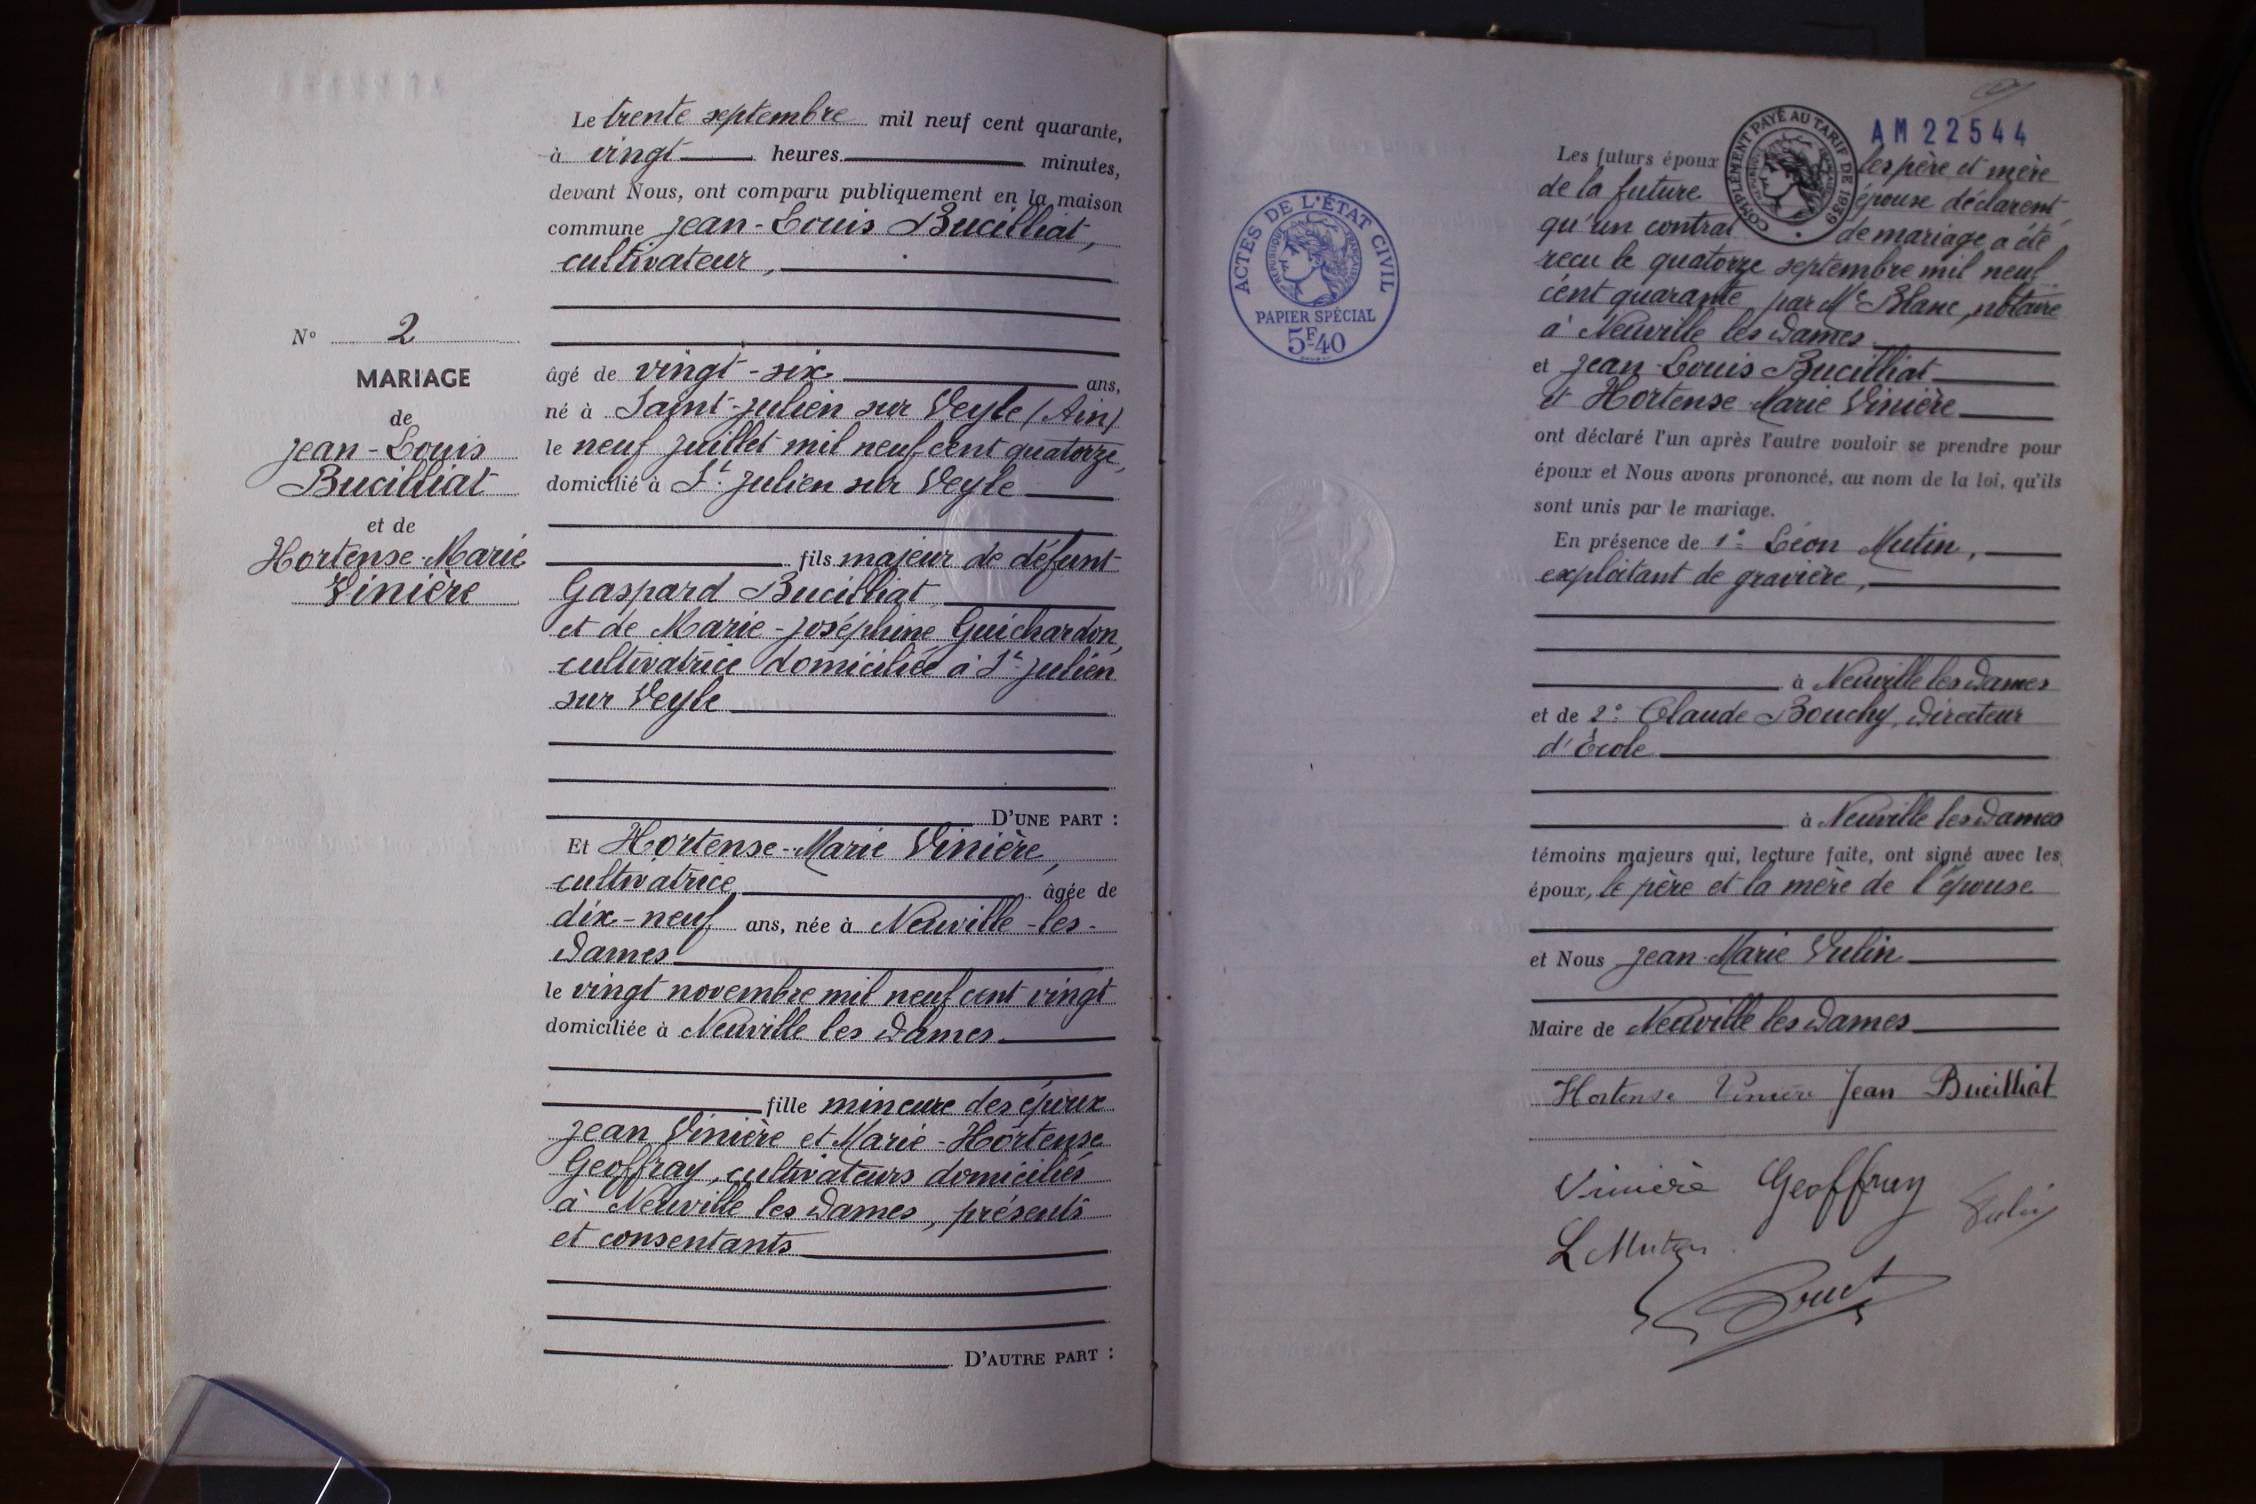 Le trente septembre mil neuf cent quarante,
à vingt heures minutes,
devant Nous, ont comparu publiquement en la maison
commune Jean-Louis Bucilliat,
cultivateur,
âgé de vingt-six ans,
né à Saint-Julien sur Veyle (Ain)
le neuf juillet mil neuf cent quatorze,
domicilié à St. Julien sur Veyle
fils majeur de défunt
Gaspard Bucilliat
et de Marie-Joséphine Guichardon,
cultivatrice domiciliée à St Julien
sur Veyle
D'UNE PART :
N° 2
MARIAGE
de
Jean-Louis
Bucilliat
et de
Hortense-Marie
Vinière
Et Hortense-Marie Vinière,
cultivatrice, âgée de
dix-neuf ans, née à Neuville-les-
Dames
le vingt novembre mil neuf cent vingt
domiciliée à Neuville les Dames
fille mineure des époux
Jean Vinière et Marie-Hortense
Geoffray, cultivateurs domiciliés
à Neuville les Dames, présents
et consentants
D'AUTRE PART :
ACTES DE L'ÉTAT CIVIL
RÉPUBLIQUE FRANÇAISE
PAPIER SPÉCIAL
5F40
COMPLÉMENT PAYÉ AU TARIF DE 1939
RÉPUBLIQUE FRANÇAISE
AM 22544
Les futurs époux les père et mère
de la future épouse déclarent
qu'un contrat de mariage a été
recu le quatorze septembre mil neuf
cent quarante par Me Blanc, notaire
à Neuville les Dames
et Jean-Louis Bucilliat
et Hortense Marie Vinière
ont déclaré l'un après l'autre vouloir se prendre pour
époux et Nous avons prononcé, au nom de la loi, qu'ils
sont unis par le mariage.
En présence de 1° Léon Mutin,
exploitant de gravière,
à Neuville les Dames
et de 2° Claude Bouchy, Directeur
d'École
à Neuville les Dames
témoins majeurs qui, lecture faite, ont signé avec les
époux, le père et la mère de l'épouse
et Nous Jean-Marie Vulin
Maire de Neuville les Dames
Hortense Vinière Jean Bucilliat
Vinière Geoffray
L Mutin